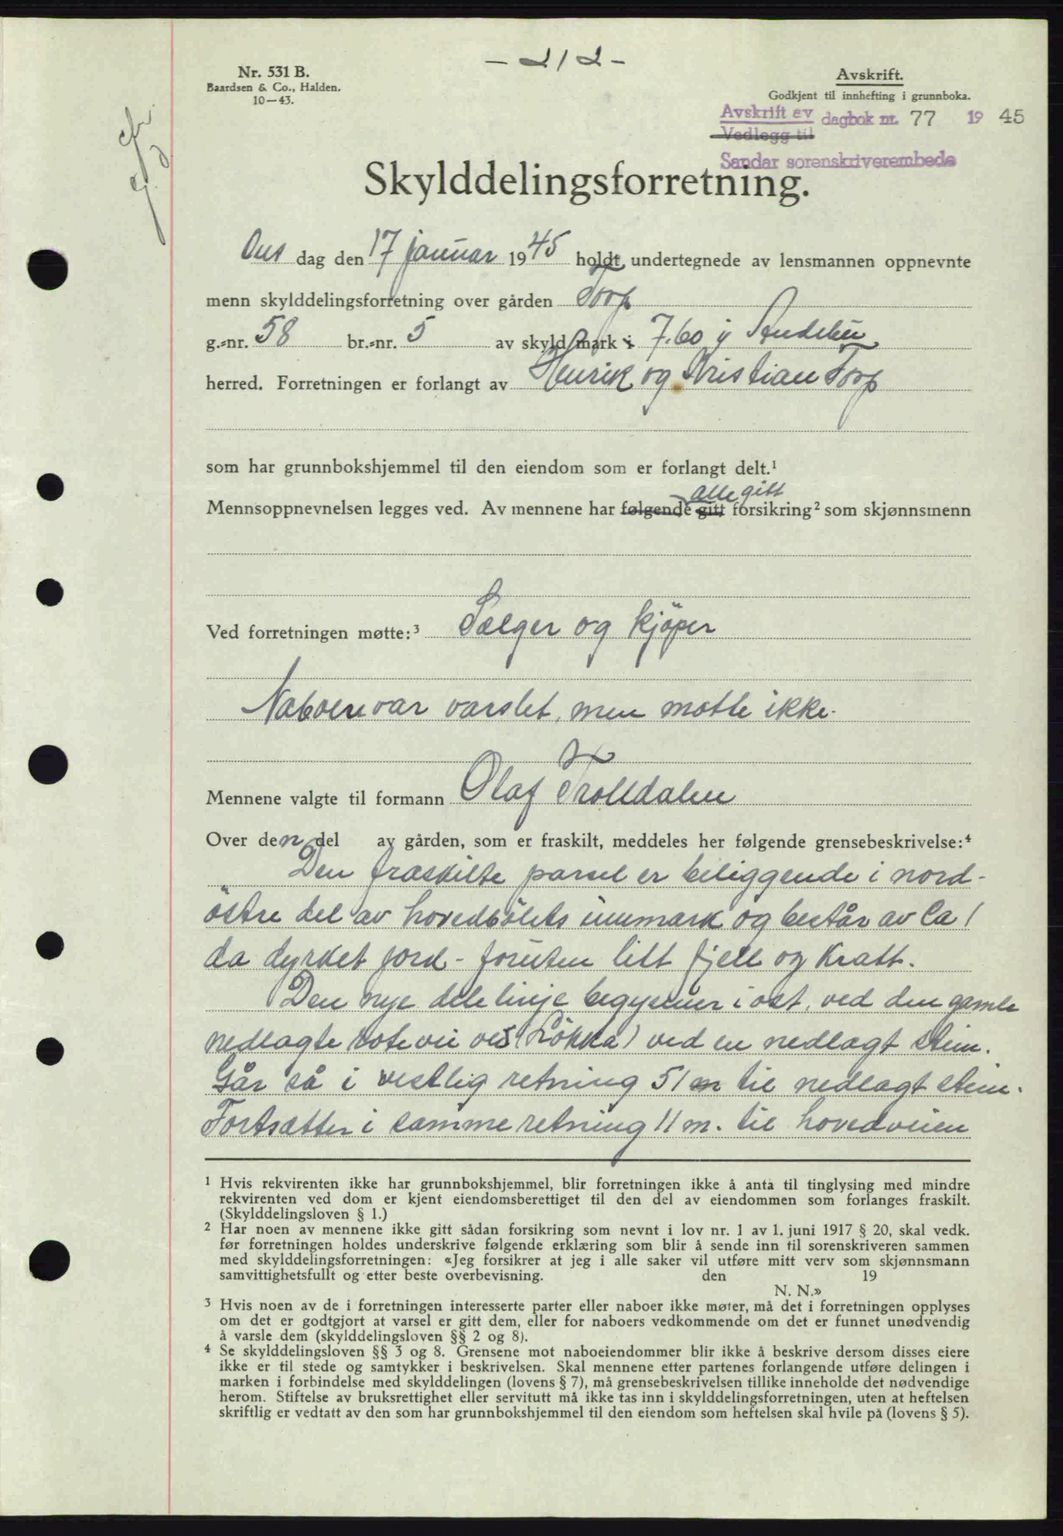 - 212 -
Nr. 531 B.
Baardsen & Co., Halden.
10-43.
Avskrift.
Godkjent til innhefting i grunnboka.
Avskrift av dagbok nr. 77 1945
Vedlegg til
Sandar sorenskriverembede
Skylddelingsforretning.
Ons dag den 17 januar 1945 holdt undertegnede av lensmannen oppnevnte
menn skylddelingsforretning over gården Torp
g.-nr. 58 br.-nr. 5 av skyldmark i 7.60 i Andebu
herred. Forretningen er forlangt av Henrik og Kristian Torp
som har grunnbokshjemmel til den eiendom som er forlangt delt.¹
alle gitt
Mennsoppnevnelsen legges ved. Av mennene har følgende gitt forsikring² som skjønnsmenn
Ved forretningen møtte:³ Sælger og kjöper
Naboer var varslet, men møtte ikke.
Mennene valgte til formann Olaf Trolldalen
Over den del av gården, som er fraskilt, meddeles her følgende grensebeskrivelse:⁴
Den fraskilte parsel er beliggende i nord-
östre del av hovedbölets innmark og består av Ca 1
da dyrket jord - foruten litt fjell og kratt.
Den nye dele linje begynner i øst, ved den gamle
nedlagte rotevei ved (Lökka) ved en nedlagt stein.
Går så i vestlig retning 51 m til nedlagt stein.
Fortsætter i samme retning 11 m. til hovedveien
¹ Hvis rekvirenten ikke har grunnbokshjemmel, blir forretningen ikke å anta til tinglysing med mindre
rekvirenten ved dom er kjent eiendomsberettiget til den del av eiendommen som forlanges fraskilt.
(Skylddelingsloven § 1.)
² Har noen av mennene ikke gitt sådan forsikring som nevnt i lov nr. 1 av 1. juni 1917 § 20, skal vedk.
før forretningen holdes underskrive følgende erklæring som blir å sende inn til sorenskriveren sammen
med skylddelingsforretningen: «Jeg forsikrer at jeg i alle saker vil utføre mitt verv som skjønnsmann
samvittighetsfullt og etter beste overbevisning. den 19
N. N.»
³ Hvis noen av de i forretningen interesserte parter eller naboer ikke møter, må det i forretningen opplyses
om det er godtgjort at varsel er gitt dem, eller for naboers vedkommende om det er funnet unødvendig
å varsle dem (skylddelingsloven §§ 2 og 8).
⁴ Se skylddelingsloven §§ 3 og 8. Grensene mot naboeiendommer blir ikke å beskrive dersom disses eiere
ikke er til stede og samtykker i beskrivelsen. Skal mennene etter partenes forlangende utføre delingen i
marken i forbindelse med skylddelingen (lovens § 7), må grensebeskrivelsen tillike inneholde det nødvendige
herom. Stiftelse av bruksrettighet eller servitutt må ikke tas inn i skylddelingsforretningen, uten at heftelsen
skriftlig er vedtatt av den som har grunnbokshjemmel til den eiendom som heftelsen skal hvile på (lovens § 5).